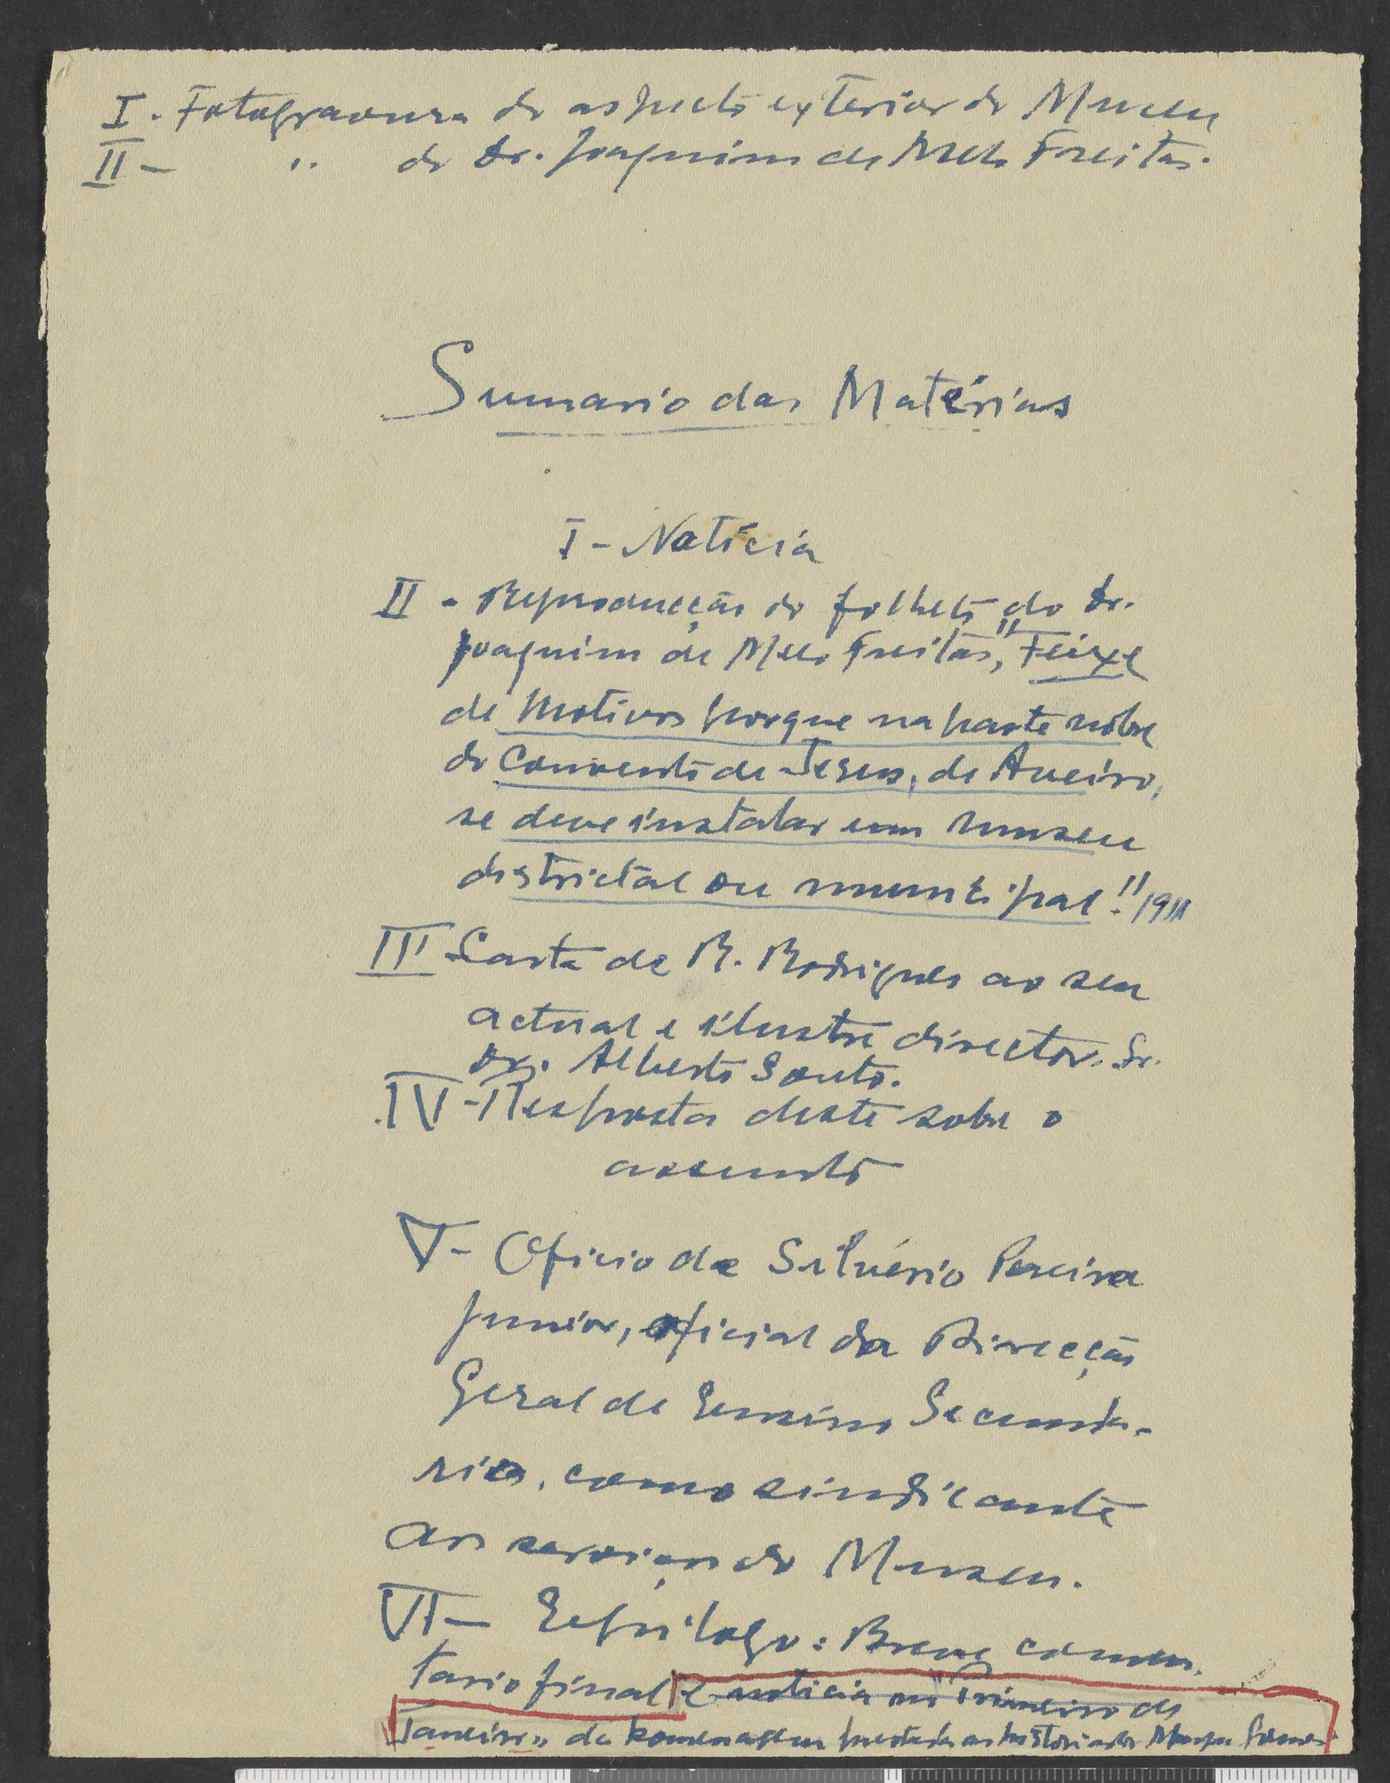 I - Fotogravura do aspecto exterior do Museu
II - " do Dr. Joaquim de Melo Freitas.
Sumario das Matérias
I - Notícia
II - Reproducção do folheto do Dr.
Joaquim de Melo Freitas, "Feixe
de motivos porque na parte nobre
do Convento de Jesus, de Aveiro,
se deve instalar um museu
districtal ou municipal". 1911
III - Carta de R. Rodrigues ao seu
actual e ilustre director. Sr.
Dr. Alberto Souto.
IV - Resposta deste sobre o
assunto
V - Oficio de Silvério Pereira
Junior, oficial da Direcção
Geral de Ensino Secunda-
rio, como sindicante
aos serviços do Museu.
VI - Epílogo: Breve comen-
tario final e noticia no "Primeiro de
Janeiro" da homenagem prestada ao historiador Marques Gomes